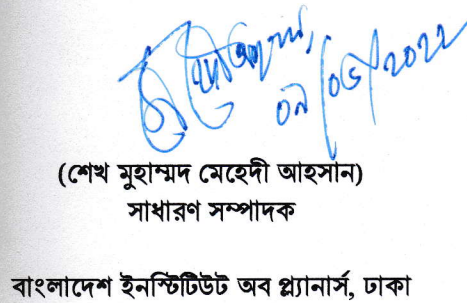 ০৯/০৬/২০২২
(শেখ মুহাম্মদ মেহেদী আহসান)
সাধারণ সম্পাদক
বাংলাদেশ ইনস্টিটিউট অব প্ল্যানার্স, ঢাকা